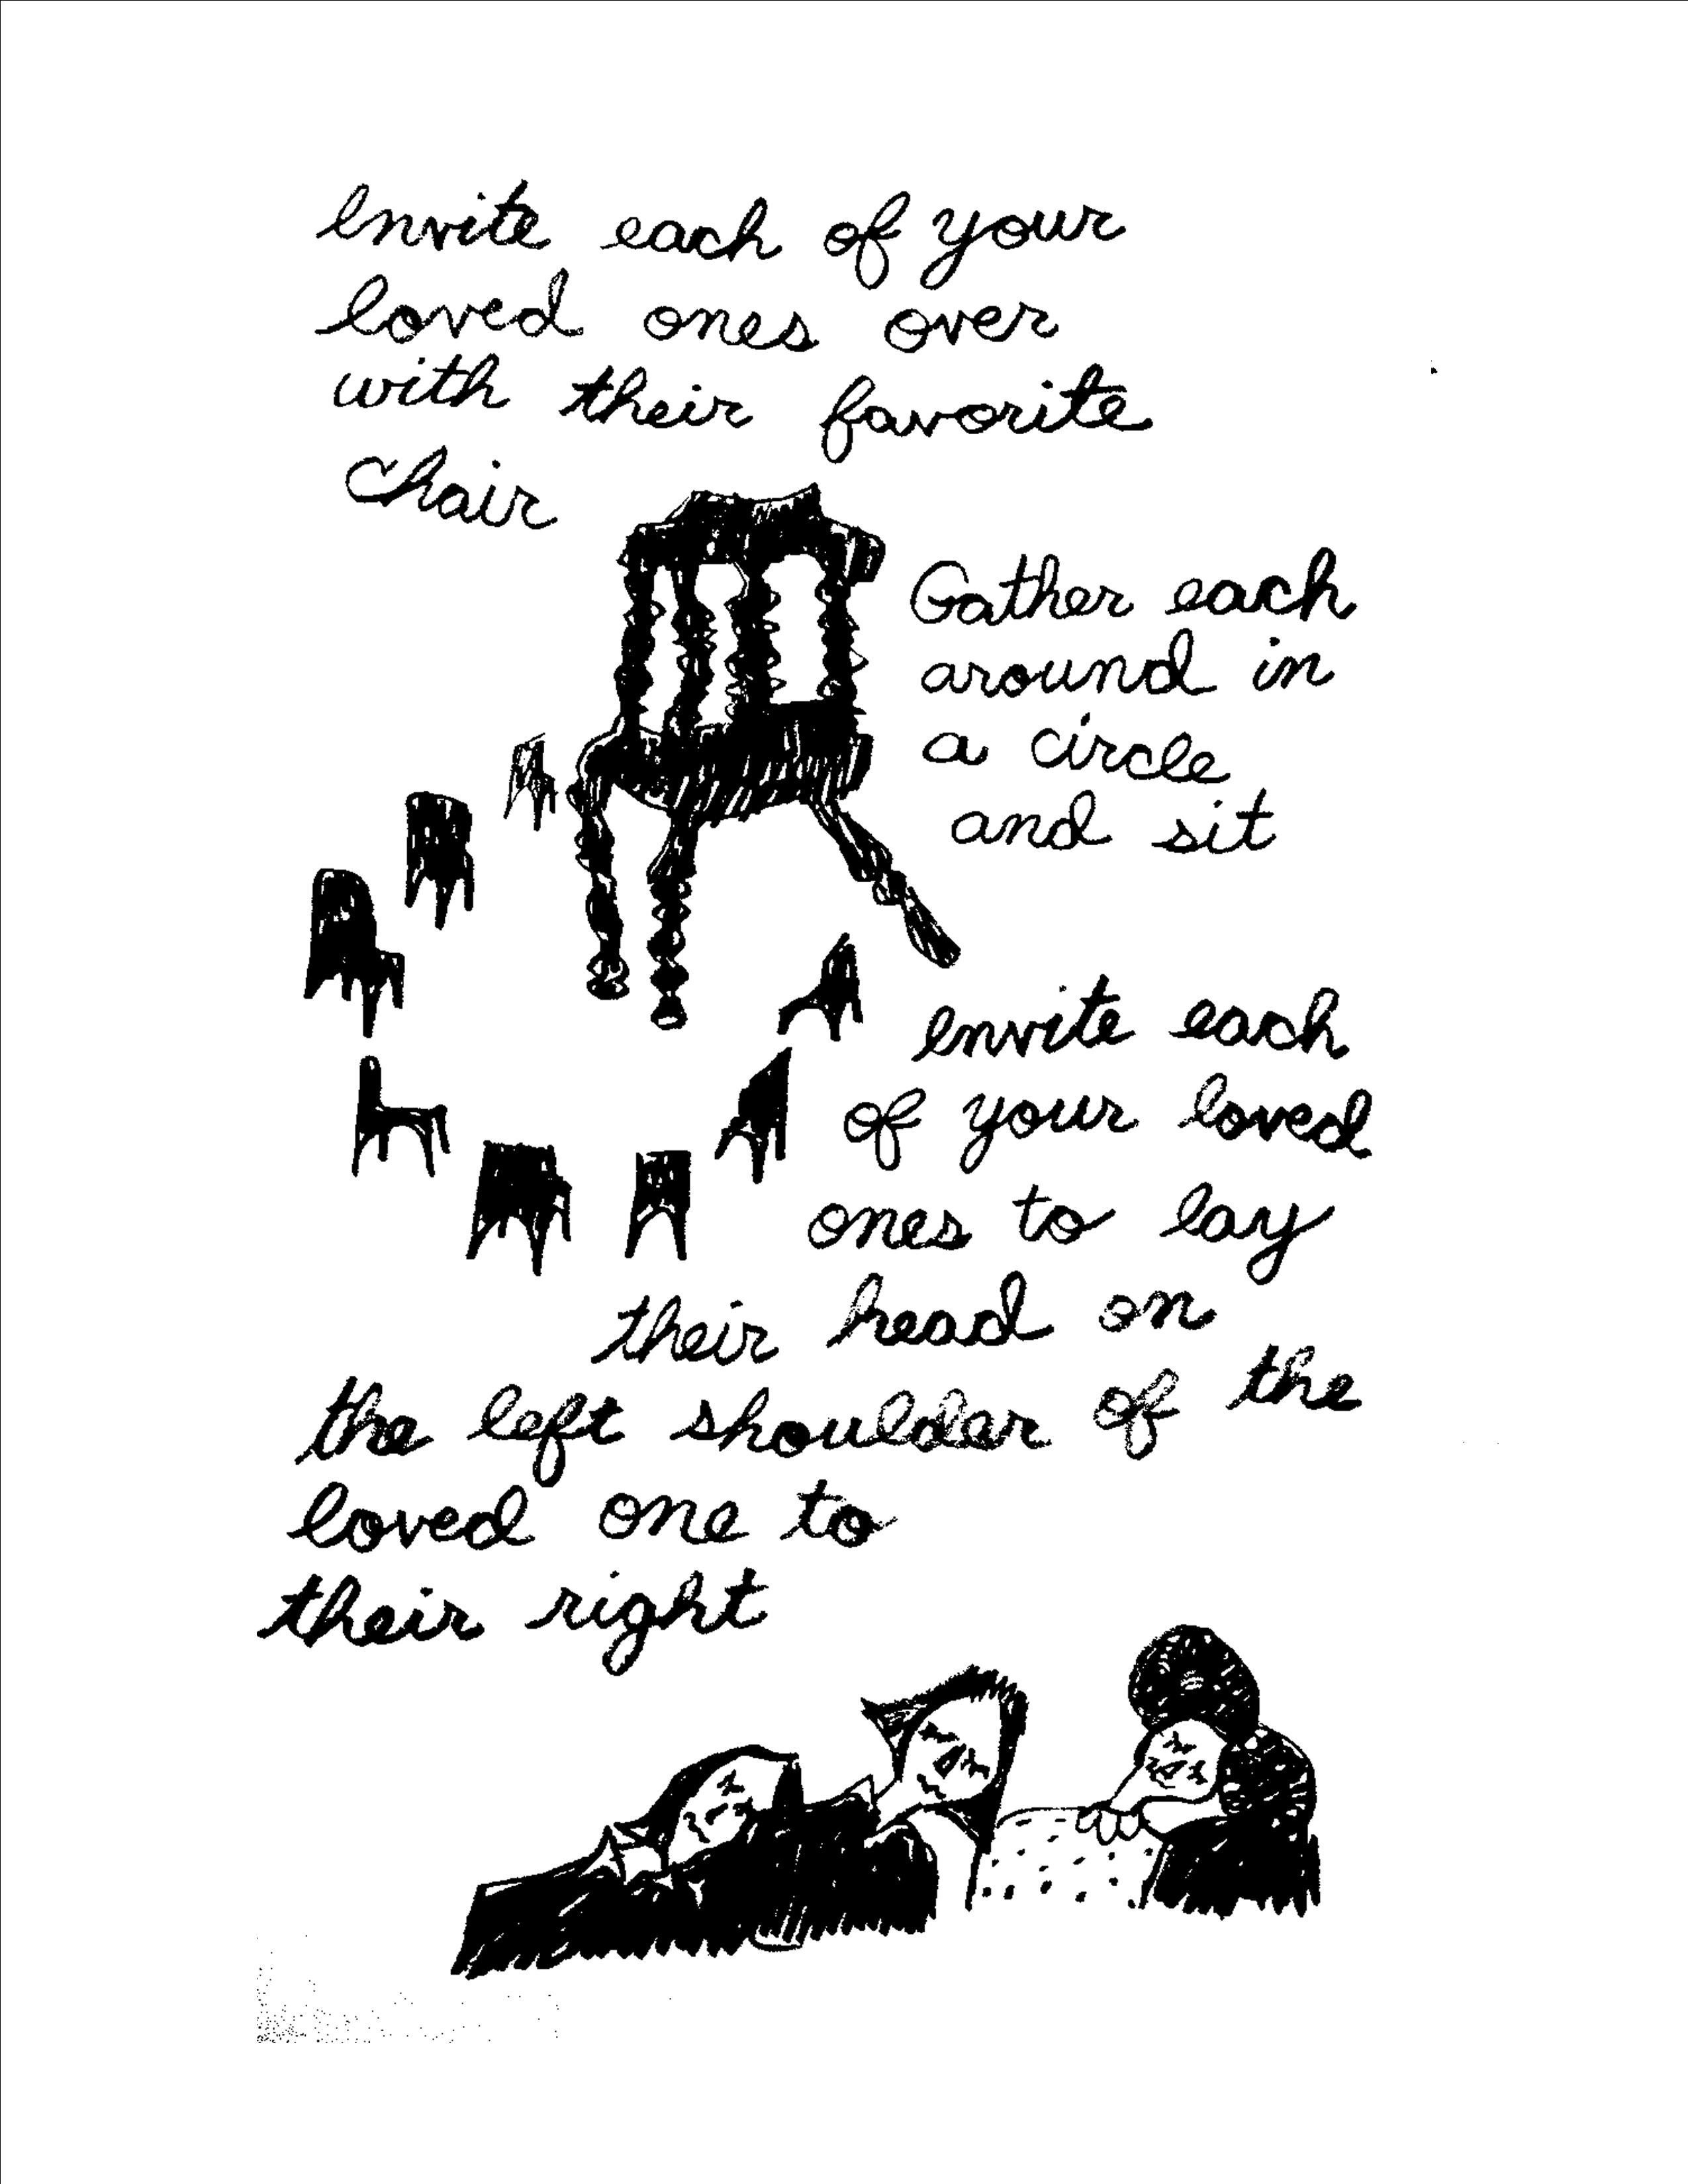 invite each of your
loved ones over
with their favorite
chair
Gather each
around in
a circle
and sit
invite each
of your loved
ones to lay
their head on
the left shoulder of the
loved one to
their right